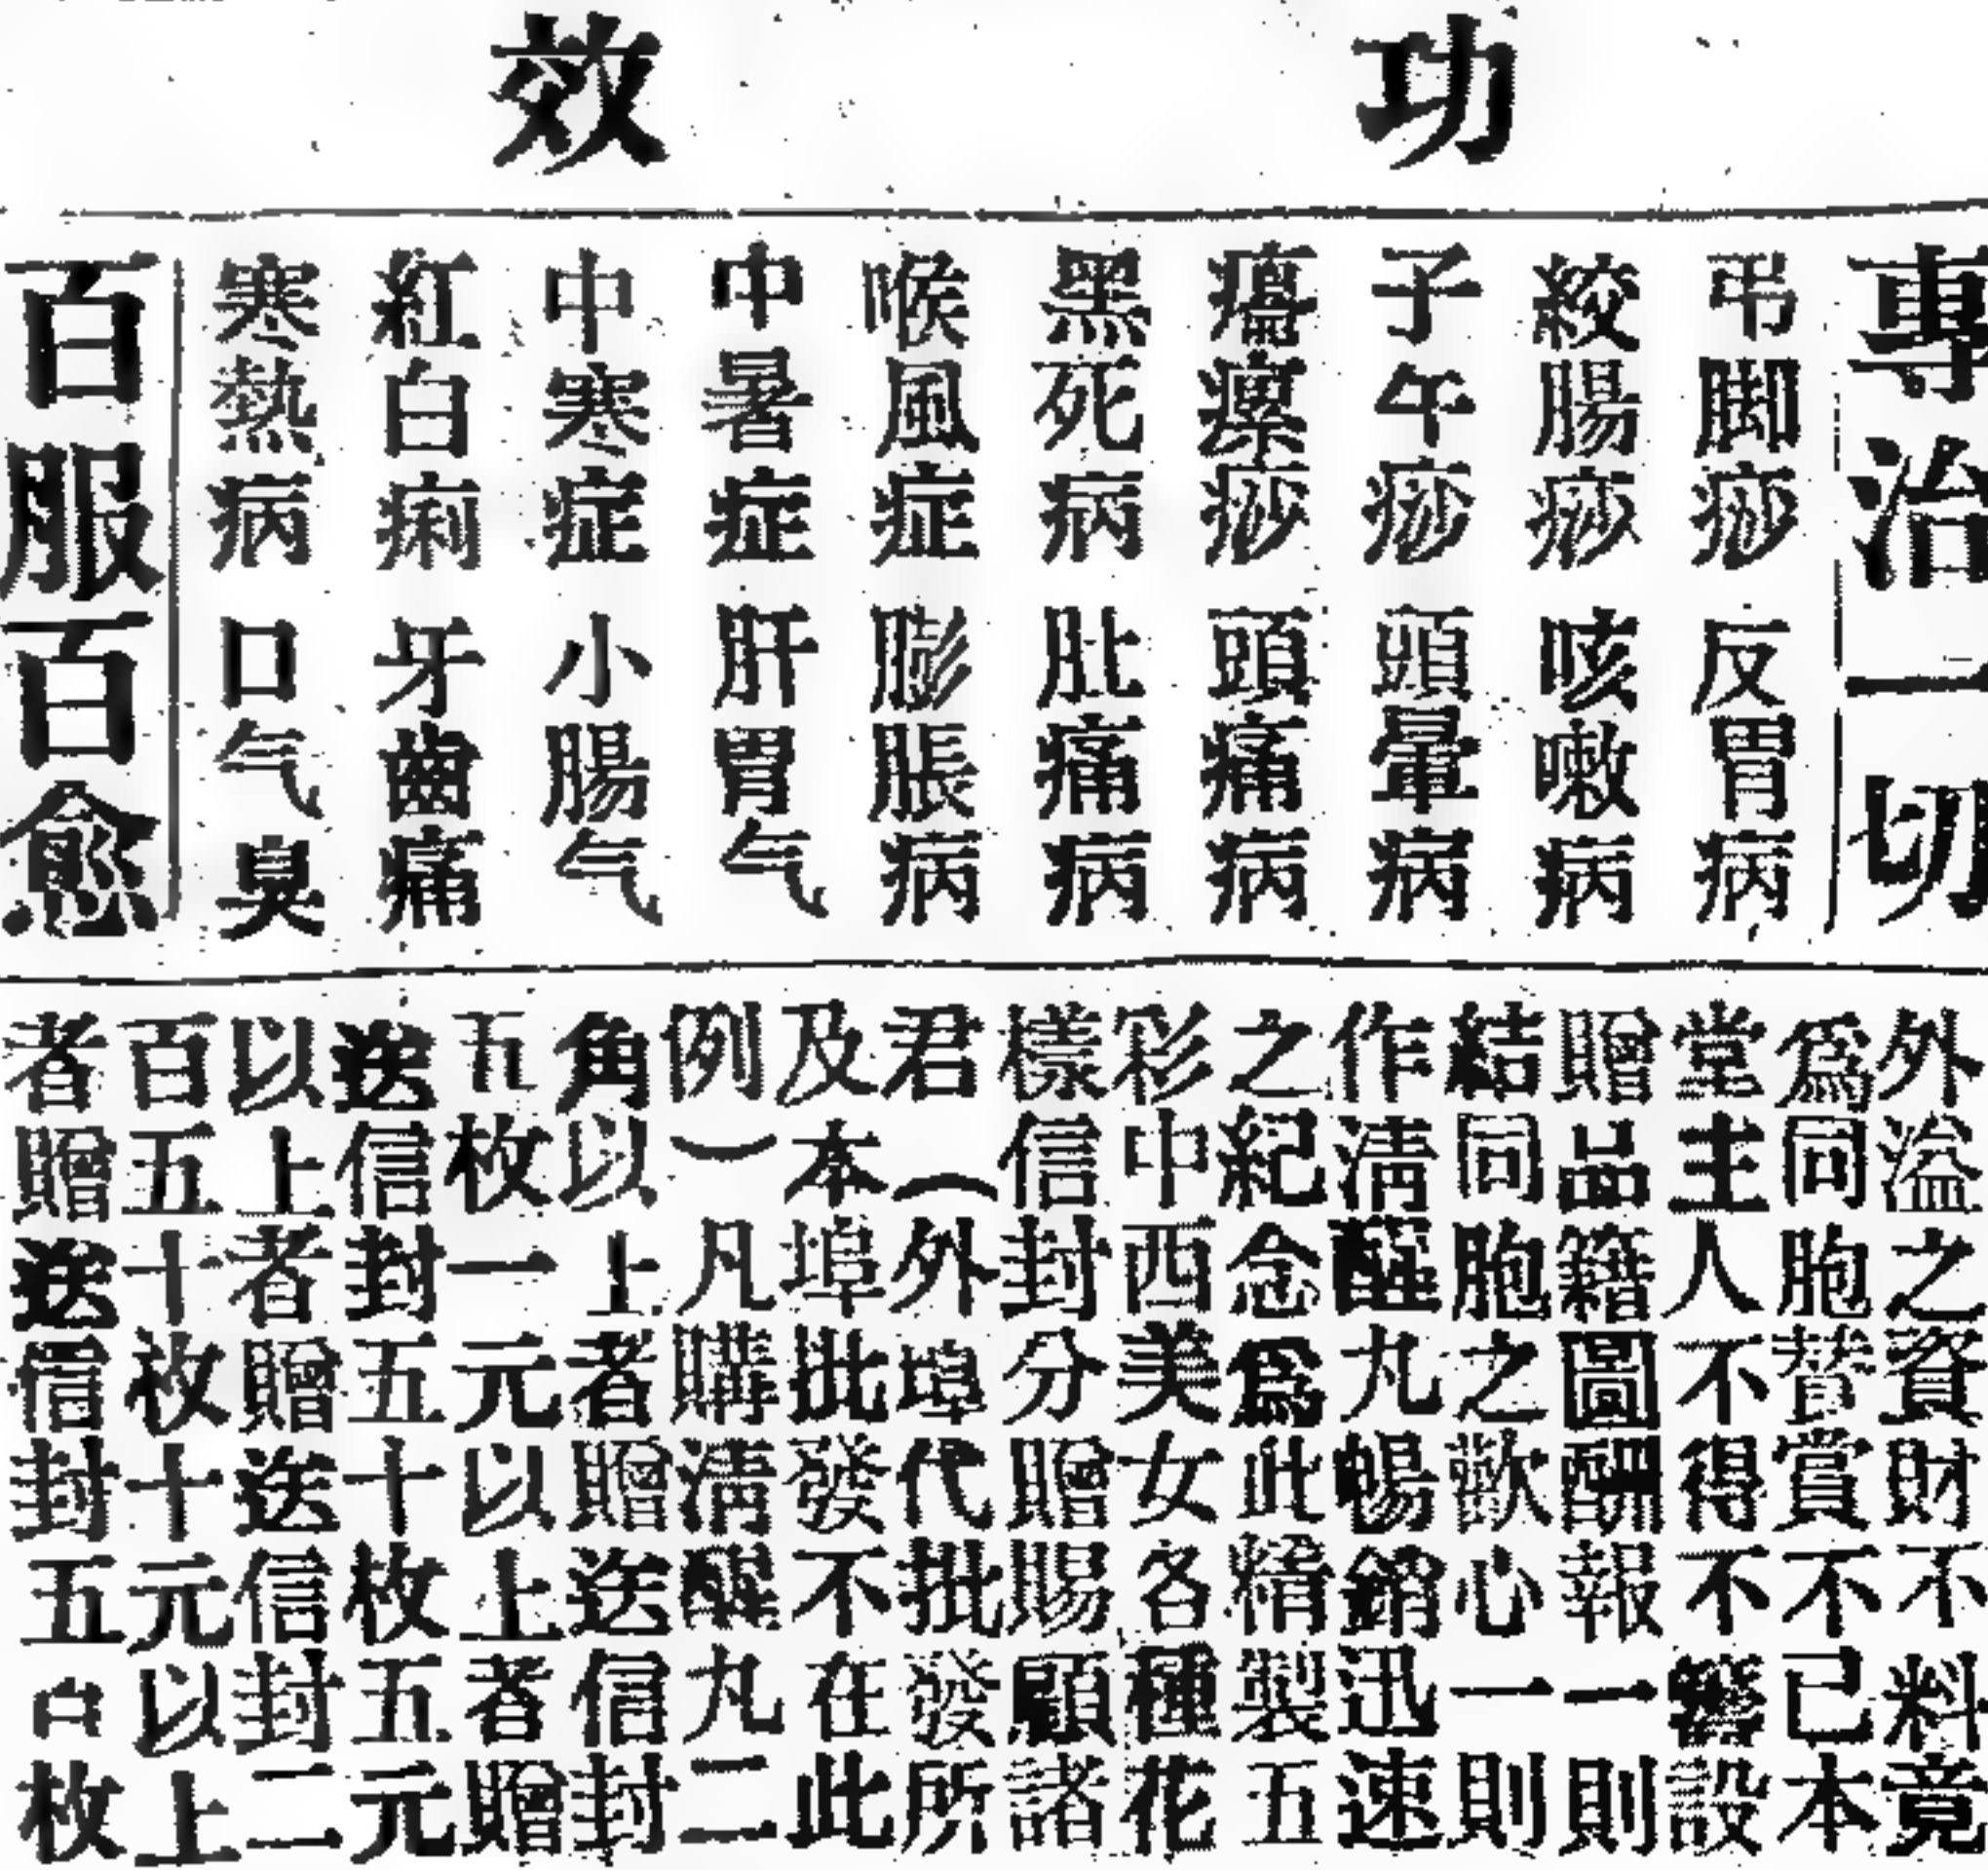 功效
專治一切
弔脚痧 反胃病
絞腸痧 咳嗽病
子午痧 頭暈病
癟瘰痧 頭痛病
黑死病 肚痛病
喉風症 膨脹病
中暑症 肝胃气
中寒症 小腸气
紅白痢 牙齒痛
寒熱病 口气臭
百服百愈
外溢之資財不料竟
爲同胞替賞不已本
堂主人不得不籌設
贈品籍圖酬報一則
結同胞之歡心一則
作淸醒丸暢銷迅速
之紀念爲此精製五
彩中西美女各種花
樣信封分贈賜顧諸
君（外埠代批發所
及本埠批發不在此
例）凡購淸醒丸二
角以上者贈送信封
五枚一元以上者贈
送信封五十枚五元
以上者贈送信封二
百五十枚十元以上
者贈送信封五百枚